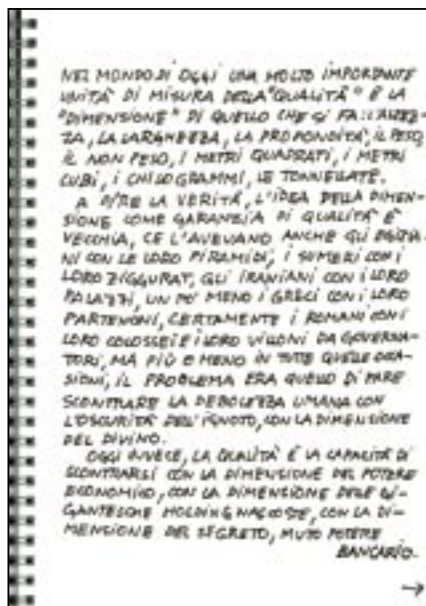 NEL MONDO DI OGGI UNA MOLTO IMPORTANTE
UNITÀ DI MISURA DELLA "QUALITÀ" È LA
"DIMENSIONE" DI QUELLO CHE SI FA: L'ALTEZ-
ZA, LA LARGHEZZA, LA PROFONDITÀ, IL PESO,
IL NON PESO, I METRI QUADRATI, I METRI
CUBI, I CHILOGRAMMI, LE TONNELLATE.
A DIRE LA VERITÀ, L'IDEA DELLA DIMEN-
SIONE COME GARANZIA DI QUALITÀ È
VECCHIA, CE L'AVEVANO ANCHE GLI EGIZIA-
NI CON LE LORO PIRAMIDI, I SUMERI CON I
LORO ZIGGURAT, GLI IRANIANI CON I LORO
PALAZZI, UN PO' MENO I GRECI CON I LORO
PARTENONI, CERTAMENTE I ROMANI CON I
LORO COLOSSEI E I LORO VILLONI DA GOVERNA-
TORI, MA PIÙ O MENO IN TUTTE QUELLE OCCA-
SIONI, IL PROBLEMA ERA QUELLO DI FARE
SCONTRARE LA DEBOLEZZA UMANA CON
L'OSCURITÀ DELL'IGNOTO, CON LA DIMENSIONE
DEL DIVINO.
OGGI INVECE, LA QUALITÀ È LA CAPACITÀ DI
SCONTRARSI CON LA DIMENSIONE DEL POTERE
ECONOMICO, CON LA DIMENSIONE DELLE GI-
GANTESCHE HOLDING NASCOSTE, CON LA DI-
MENSIONE DEL SEGRETO, MUTO POTERE
BANCARIO.
→